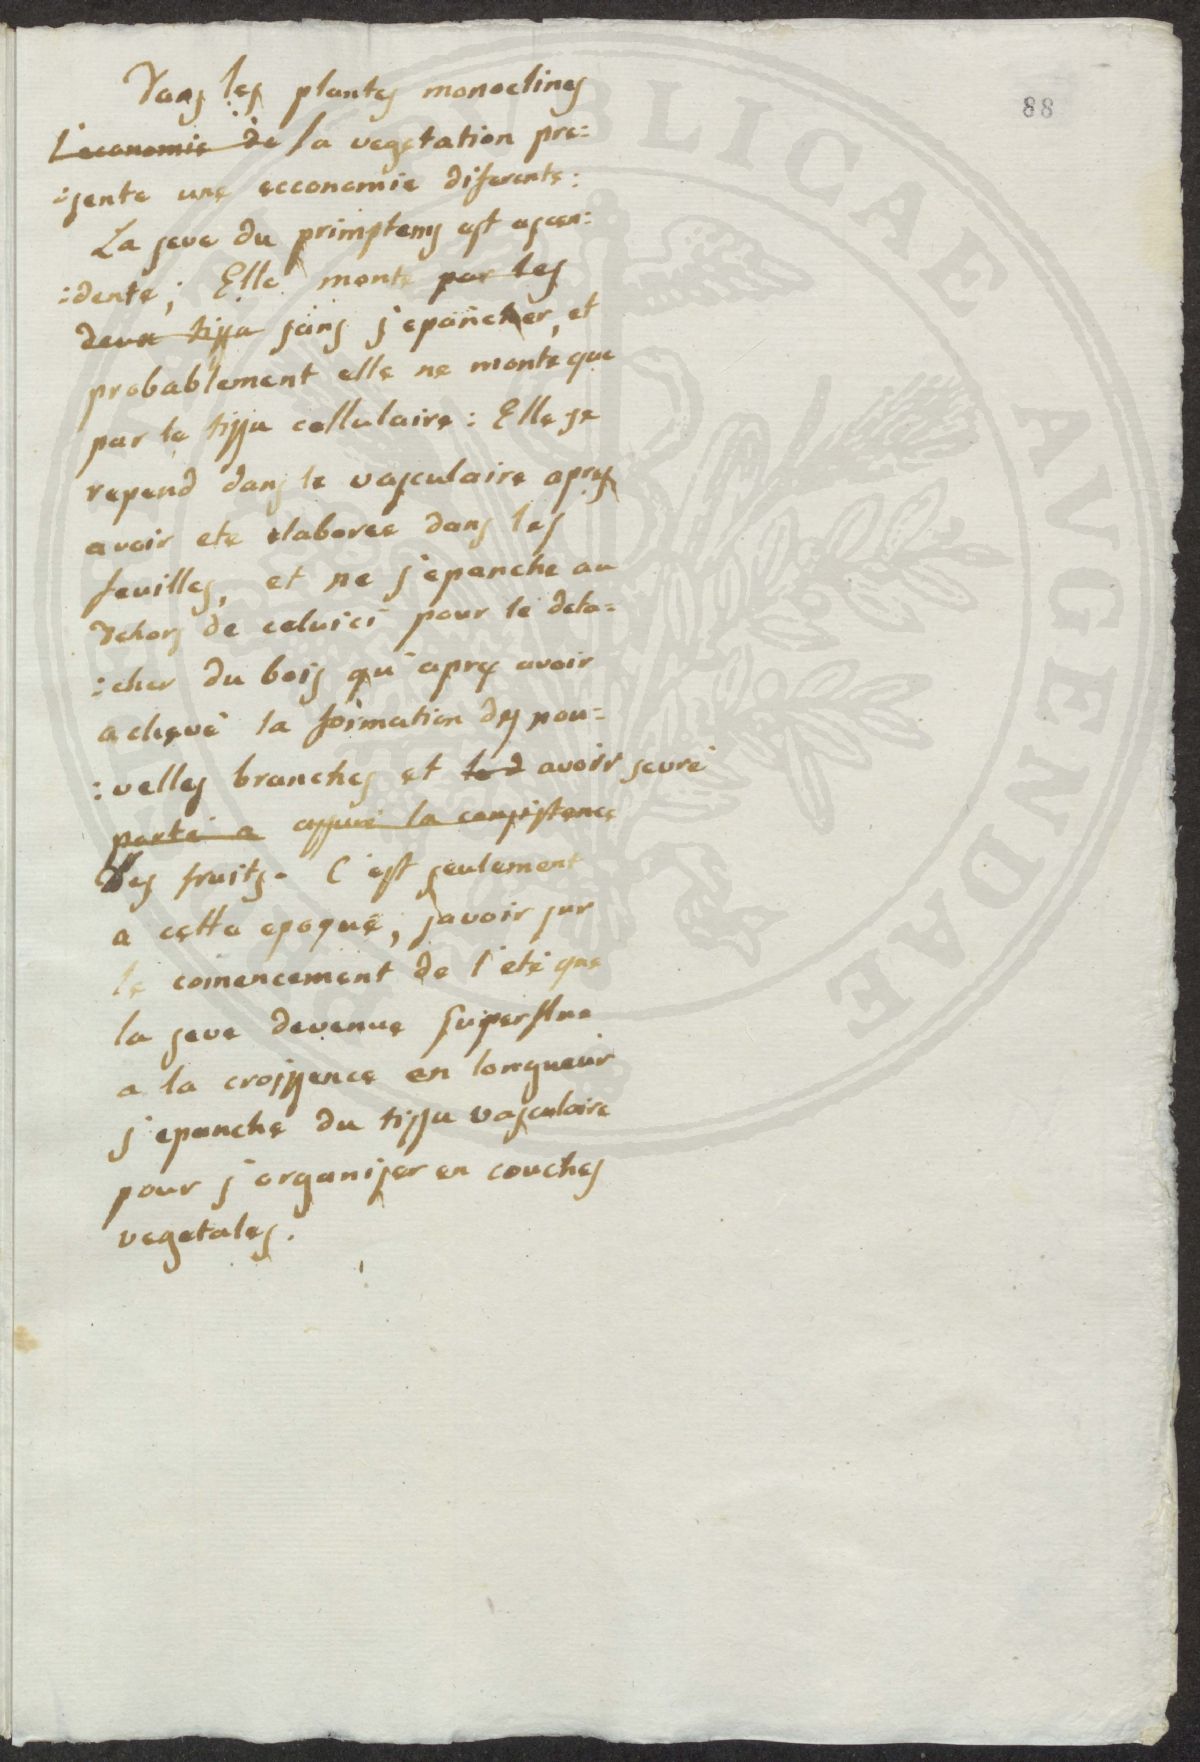 88
Dans les plantes monoclines
l'economie de la vegetation pre=
=sente une ecconomie diferente:
La seve du primptems est ascen=
=dente; Elle monte par les
deux tissu sans s'epancher, et
probablement elle ne monte que
par le tissu cellulaire: Elle se
repend dans le vasculaire apres
avoir ete elaboree dans les
feuilles, et ne s'epanche au
dehors de celuici pour le deta=
=cher du bois qu'apres avoir
achevé la formation des nou=
=velles branches et avoir sevré
porté a assuré la consistence
des fruits. C'est seulement
a cette epoque, savoir sur
le comencement de l'eté que
la seve devenue superflue
a la croissence en longueur
s'epanche du tissu vasculaire
pour s'organiser en couches
vegetales.
PUBLICAE AVGENDAE